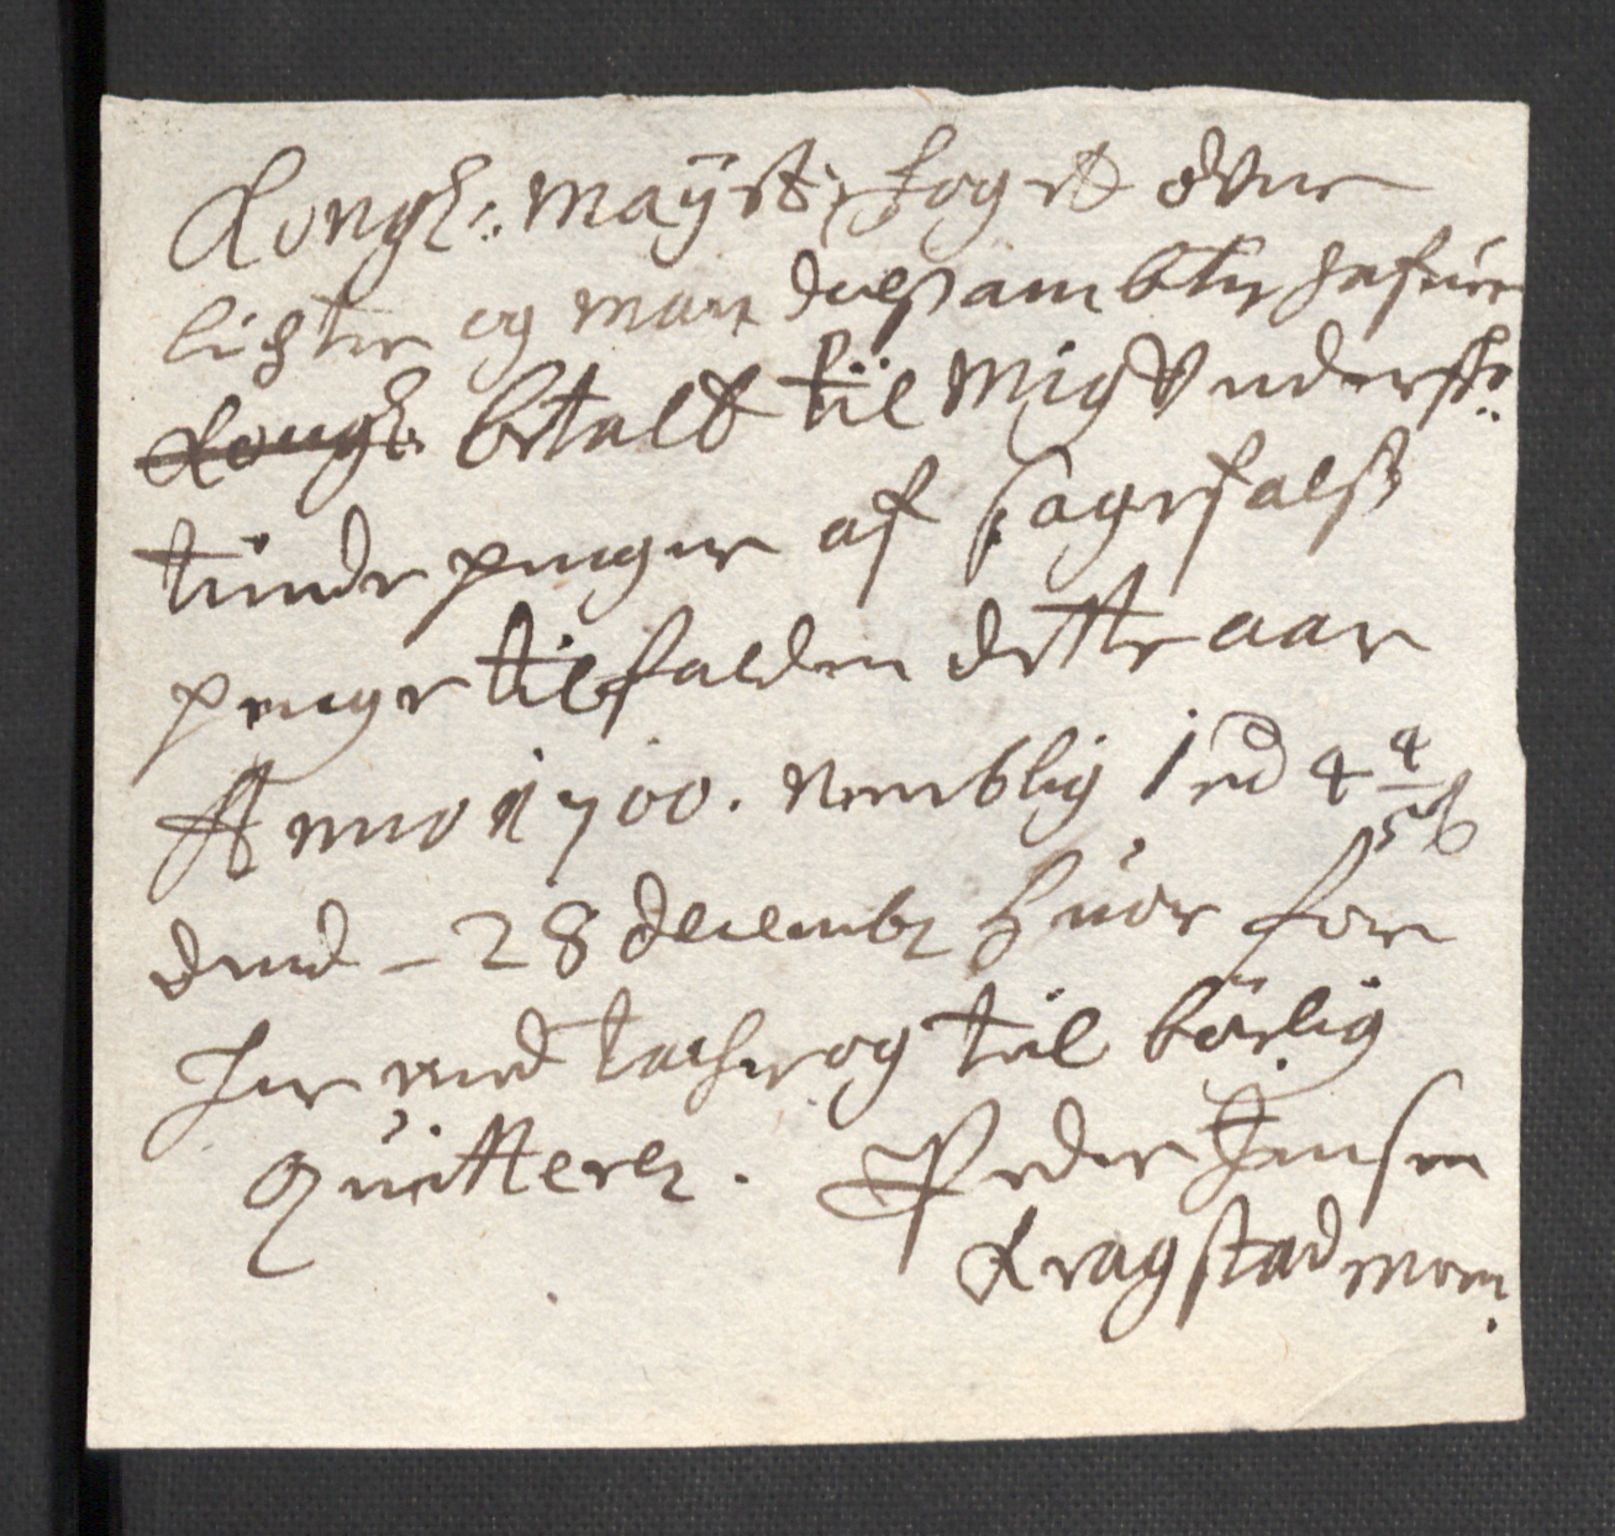 Kongl: Maÿst: fogt ofuer
Lister og Mandals ambter hafuer
Kongl. betalt til Mig Underskr:
tiinde penger af Sagefals
penge tilfalden dette aar
Anno 1700. Nemblig 1 rd 4 4/5 ß
dend – 28 decembr huor for
Jeg med tacher og tilbørlig
quitterer. Peder Jensen
Kragstad mom.